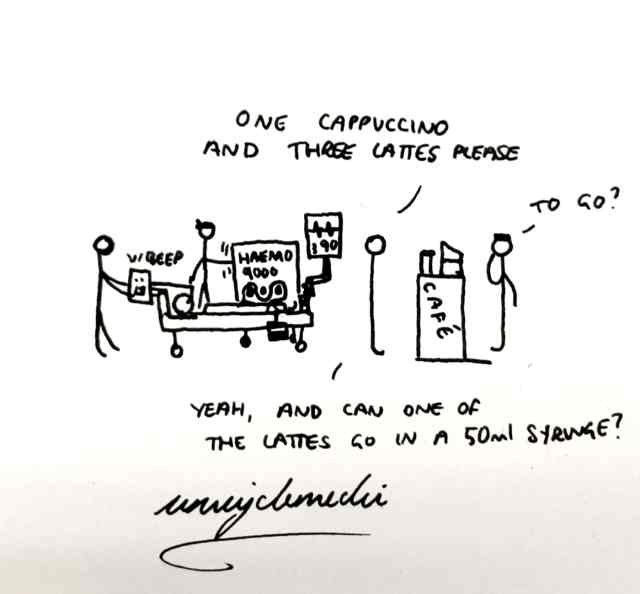 ONE CAPPUCCINO
AND THREE LATTES PLEASE
TO GO?
BEEP
HAEMO
9000
90
CAFÉ
YEAH, AND CAN ONE OF
THE LATTES GO IN A 50ml SYRINGE?